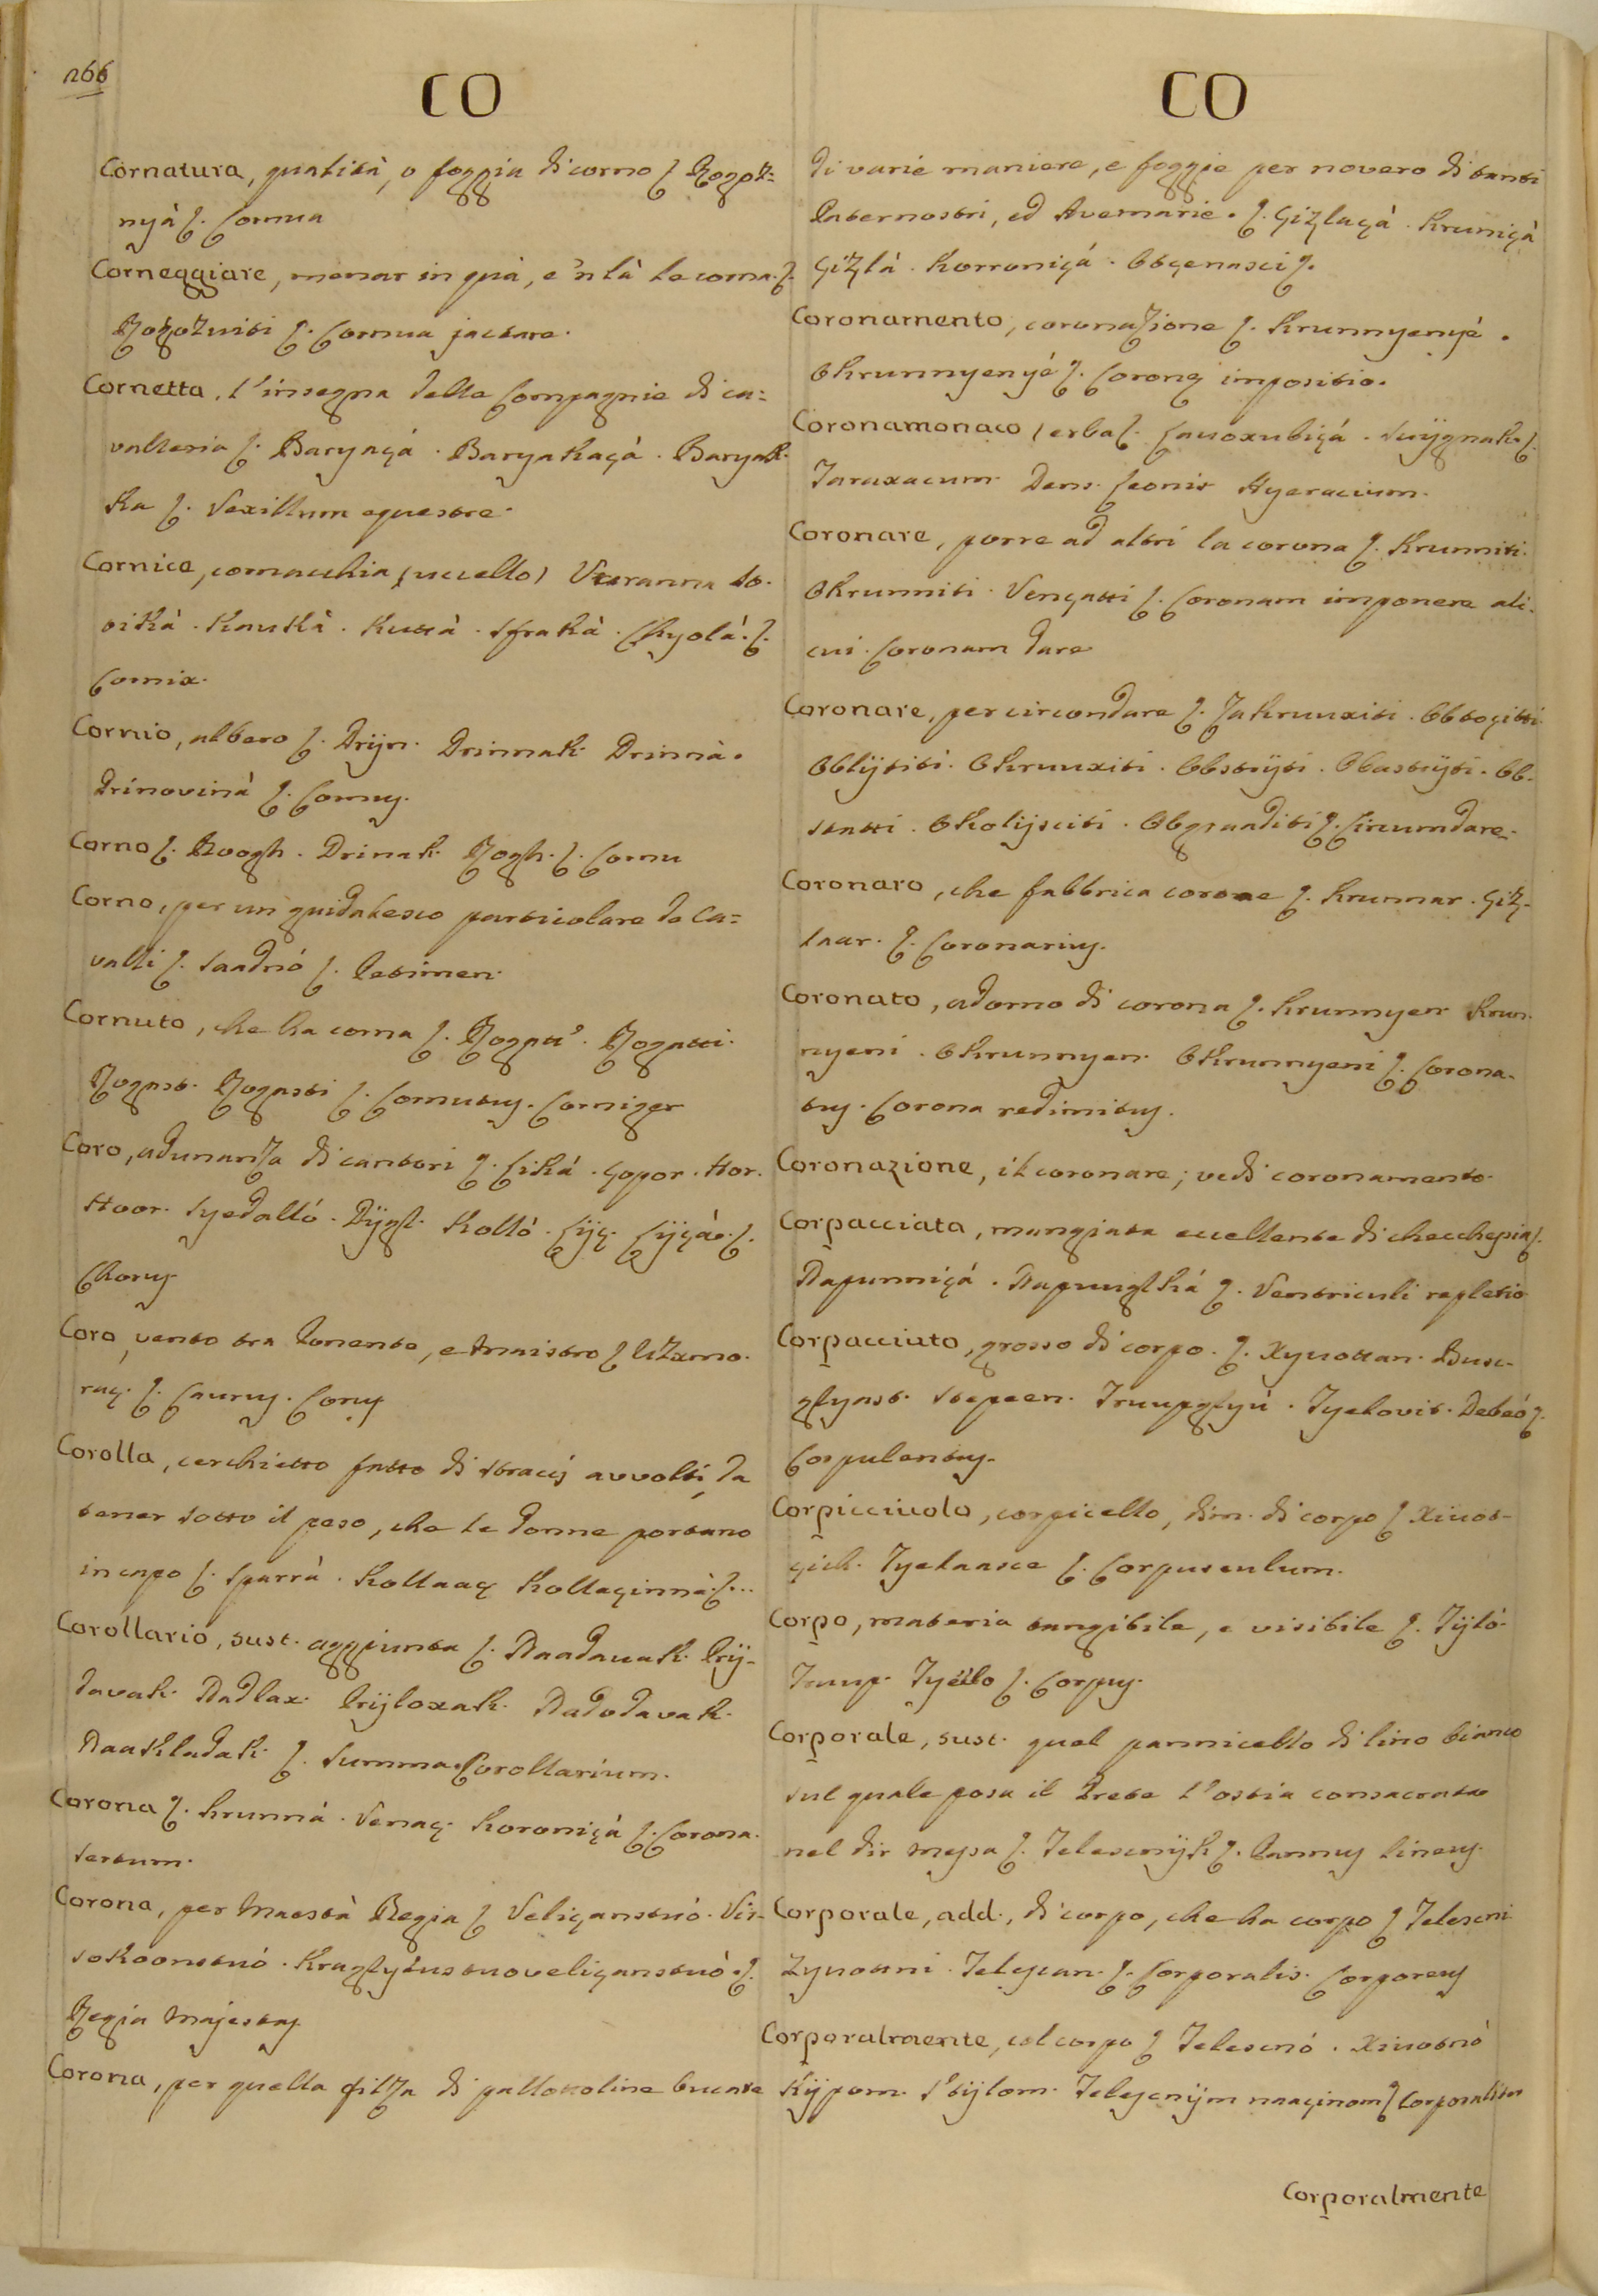 266
CO
Cornatura, qualità, o foggia di corno ſ. Rogoz=
nyà ſ. Cornua
Corneggiare, menar in quà, e 'n là le corna. ſ.
Rogozuiti ſ. Cornua jactare.
Cornetta, l'insegna delle Compagnie di ca=
valleria ſ. Baryaçá. Baryakaçà. Baryak.
ka ſ. Vexillum equestre.
Cornice, cornacchia (uccello) Vuranna
Kaukà. Kuttà.
Cornix.
Cornio, albero ſ. Drijn. Drinnak. Drinnà.
Drinovinà ſ. Cornus.
Corno ſ. Roogh. Drinak. Rogh. ſ. Cornu
Corno, per un guidalesco particolare de Ca=
valli ſ. Saadnó ſ. Petimen.
Cornuto, che ha corna ſ. Rogat'. Rogatti.
Rogast. Rogasti ſ. Cornutus. Corniger
Coro, adunanza di cantori ſ. Likà. Çopor. Hor.
Hoor. Syedalló. Dijgl. Kolló. Lijç. Lijçá. ſ.
Chorus
Coro, vento tra Ponente, e Maistro ſ.
ſ. Caurus. Corus
Corolla, cerchietto fatto di stracij avvolti, da
tener sotto il peso, che le donne portano
in capo ſ. Sparrà. Kollaaç Kollaçinnà. ſ...
Corollario, sust. aggiunta ſ. Naadauak. Prij-
davak. Nadlax. Prijloxak. Nadodavak.
Naakladak. ſ. Summa. Corollarium.
Corona ſ. Krunnà. Venaç. Koroniçà ſ. Corona.
Sertum.
Corona, per Maestà Regia ſ. Veliçanstuó. Vis-
sokoonstuó. Kraglyeustuoveliçanstuó. ſ.
Regia Majestas
Corona, per quella filza di pallottoline bucate
CO
di varie maniere, e foggie per novero di tanti
Paternostri, ed Avemarie. ſ. Çizlaçà. Kruniçà
Çizlà. Korroniçá. Obçenasci ſ.
Coronamento, coronazione ſ. Krunnyenyé.
Okrunnyenyé ſ. Coronę impositio.
Coronamonaco (erba ſ. Lauoxubiçá. Suijgnak. ſ.
Taraxacum. Dens Leonis Hyeracium.
Coronare, porre ad altri la corona ſ. Krunniti.
Okrunniti. Vençatti ſ. Coronam imponere ali.
cui. Coronam dare
Coronare, per circondare ſ. Zakruuxiti. Obtoçitti
Oblijtiti. Okruuxiti. Obstrijti. Obastrijti. Ob.
statti. Okolijsciti. Obgraaditi ſ. Circumdare.
Coronaro, che fabbrica corone ſ. Krunnar. Çiz-
laar. ſ. Coronarius.
Coronato, adorno di corona ſ. Krunnyen Krun.
nyeni. Okrunnyen. Okrunnyeni ſ. Corona.
tus. Corona redimitus.
Coronazione, il coronare; vedi coronamento.
Corpacciata, mangiata eccellente di checchesia ſ.
Napunniçá. Napuuglká ſ. Ventriculi repletio
Corpacciuto, grosso di corpo. ſ. Xyuottan. Busc-
glyast. Stepeen. Truupglyú. Tyelovit. Debeó ſ.
Corpulentus.
Corpicciuolo, corpicello, dim. di corpo ſ. Xiuot-
çich. Tyelaasce ſ. Corpusculum.
Corpo, materia tangibile, e visibile ſ. Tijló.
Truup. Tyello ſ. Corpus.
Corporale, sust. quel pannicello di lino bianco
sul quale posa il Prete l'ostia consacrata
nel dir messa ſ. Telescnijk ſ. Pannus lineus.
Corporale, add., di corpo, che ha corpo ſ. Telescni
Zyuotni. Telescan. ſ. Corporalis. Corporeus
Corporalmente, col corpo ſ. Telescnó. Xiuotnó
Kijpom. S'tijlom. Telescnijm naaçinom ſ. Corporaliter
Corporalmente